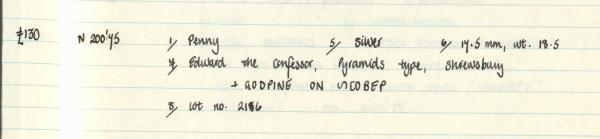 £130 N 200'45 1/ Penny 5/ Silver 6/ 17.5 mm, wt. 18.5
7/ Edward the confessor, Pyramids type, shrewsbury
+ GODPINE ON SCOBEP
8/ Lot no. 2186